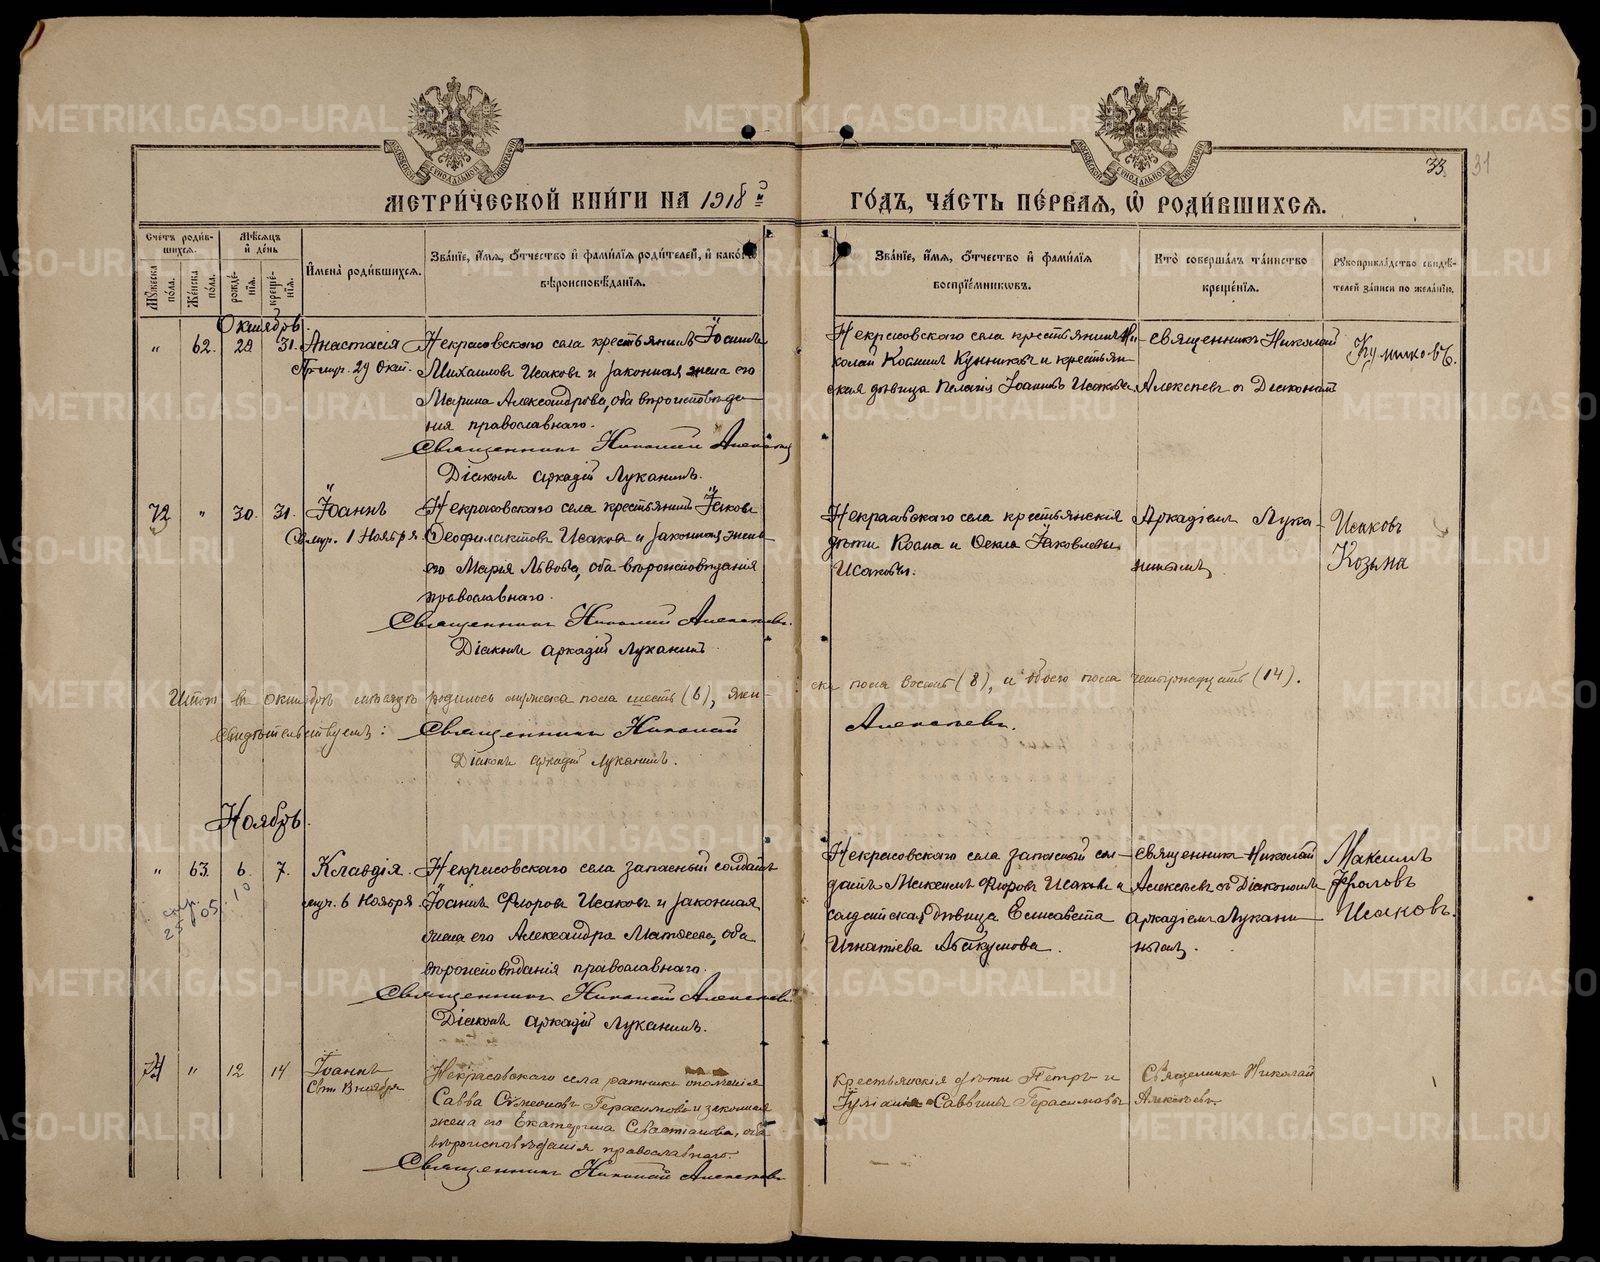 МЕТРИ́ЧЕСКОЙ КНИ́ГИ НА 1918 й
ГО́ДЪ, ЧА́СТЬ ПЕ́РВАЯ, Ѡ РОДИ́ВШИХСЯ.
33. 31
Сче́тъ роди́вшихся.
Мѣ́сяцъ и де́нь
Му́жеска по́ла.
Же́нска по́ла.
рожде́нїя.
креще́нїя.
И҆мена̀ роди́вшихся.
Зва́нїе, и҆́мя, ѻ҆́тчество и҆ фами́лїя роди́телей, и҆ како́гѡ
вѣроисповѣ́данїя.
Зва́нїе, и҆́мя, ѻ҆́тчество и҆ фами́лїя
воспрїе́мниковъ.
Кто̀ соверша́лъ та́инство
креще́нїя.
Рꙋкоприкла́дство свидѣ́-
телей за́писи по жела́нїю.
Октябрь.
„ 62. 28 31. Анастасія
29 Окт.
Некрасовскаго села крестьянинъ Іоаннъ
Михаиловъ Исаковъ и законная жена его
Марина Александрова, оба вѣроисповѣда-
нія православнаго.
Священникъ Николай Алексѣевъ
Діаконъ Аркадій Луканинъ.
Некрасовскаго села крестьянинъ Ни-
колай Косминъ Куликовъ и крестьян-
ская дѣвица Пелагія Іоаннова Исакова
Священникъ Николай
Алексѣевъ съ Діакономъ
Куликовъ.
72 „ 30. 31. Іоаннъ
1 Ноября.
Некрасовскаго села крестьянинъ Іаковъ
Ѳеофилактовъ Исаковъ и законная жена
его Марія Львова, оба вѣроисповѣданія
православнаго.
Священникъ Николай Алексѣевъ.
Діаконъ Аркадій Луканинъ
Некрасовскаго села крестьянскія
дѣти Косма и Ѳекла Іаковлевы
Исаковы.
Аркадіемъ Лука-
нинымъ
Исаковъ
Козьма
Итого въ октябрѣ мѣсяцѣ родилось мужеска пола шесть (6), жен-
ска пола восемь (8), и обоего пола четырнадцать (14).
Свидѣтельствуемъ: Священникъ Николай
Алексѣевъ.
Діаконъ Аркадій Луканинъ.
Ноябрь.
„ 63. 6. 7. Клавдія.
6 Ноября
Некрасовскаго села запасный солдатъ
Іоаннъ Фроровъ Исаковъ и законная
жена его Александра Матѳеева, оба
вѣроисповѣданія православнаго.
Священникъ Николай Алексѣевъ.
Діаконъ Аркадій Луканинъ.
Некрасовскаго села запасный сол-
датъ Максимъ Фроровъ Исаковъ и
солдатская дѣвица Елисавета
Игнатіева Абакумова.
Священникъ Николай
Алексѣевъ съ Діакономъ
Аркадіемъ Лукани-
нымъ.
Максимъ
Фроловъ
Исаковъ.
74 „ 12 14 Іоаннъ
13 ноября
Некрасовскаго села ратникъ ополченія
Савва Симеоновъ Герасимовъ и законная
жена его Екатерина Севастіанова, оба
вѣроисповѣданія православнаго.
Священникъ Николай Алексѣевъ
Крестьянскія дѣти Петръ и
Іуліанія Саввины Герасимовы
Священникъ Николай
Алексѣевъ.
METRIKI.GASO-URAL.RU